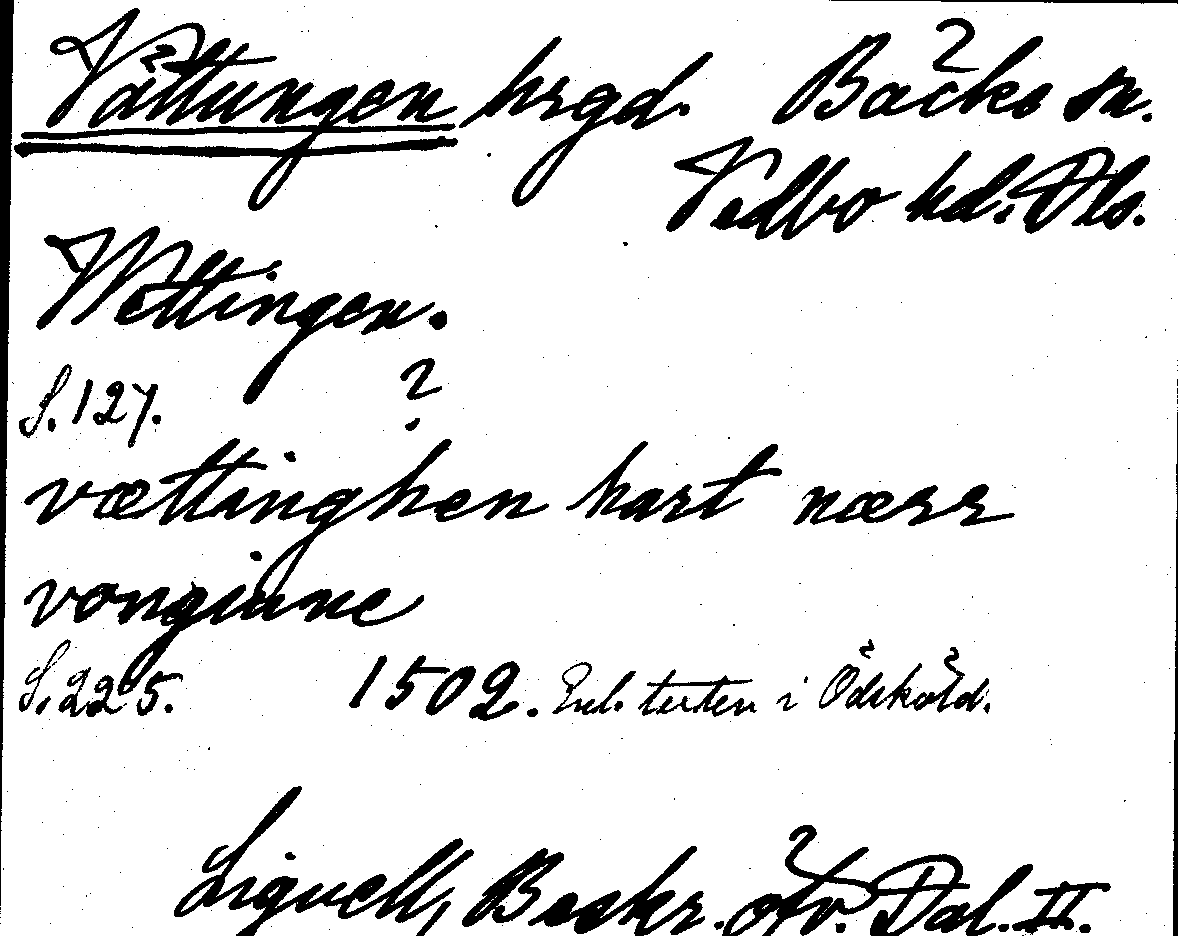 Vättungen hrgd. Bäcke sn.
Vedbo hd. Dls.
Wettingen.
S. 127. ?
vættinghen hart nærr
vonginne
S. 225. 1502. Enl. texten i Ödsköld.
Lignell, Beskr. öfv. Dal. II.